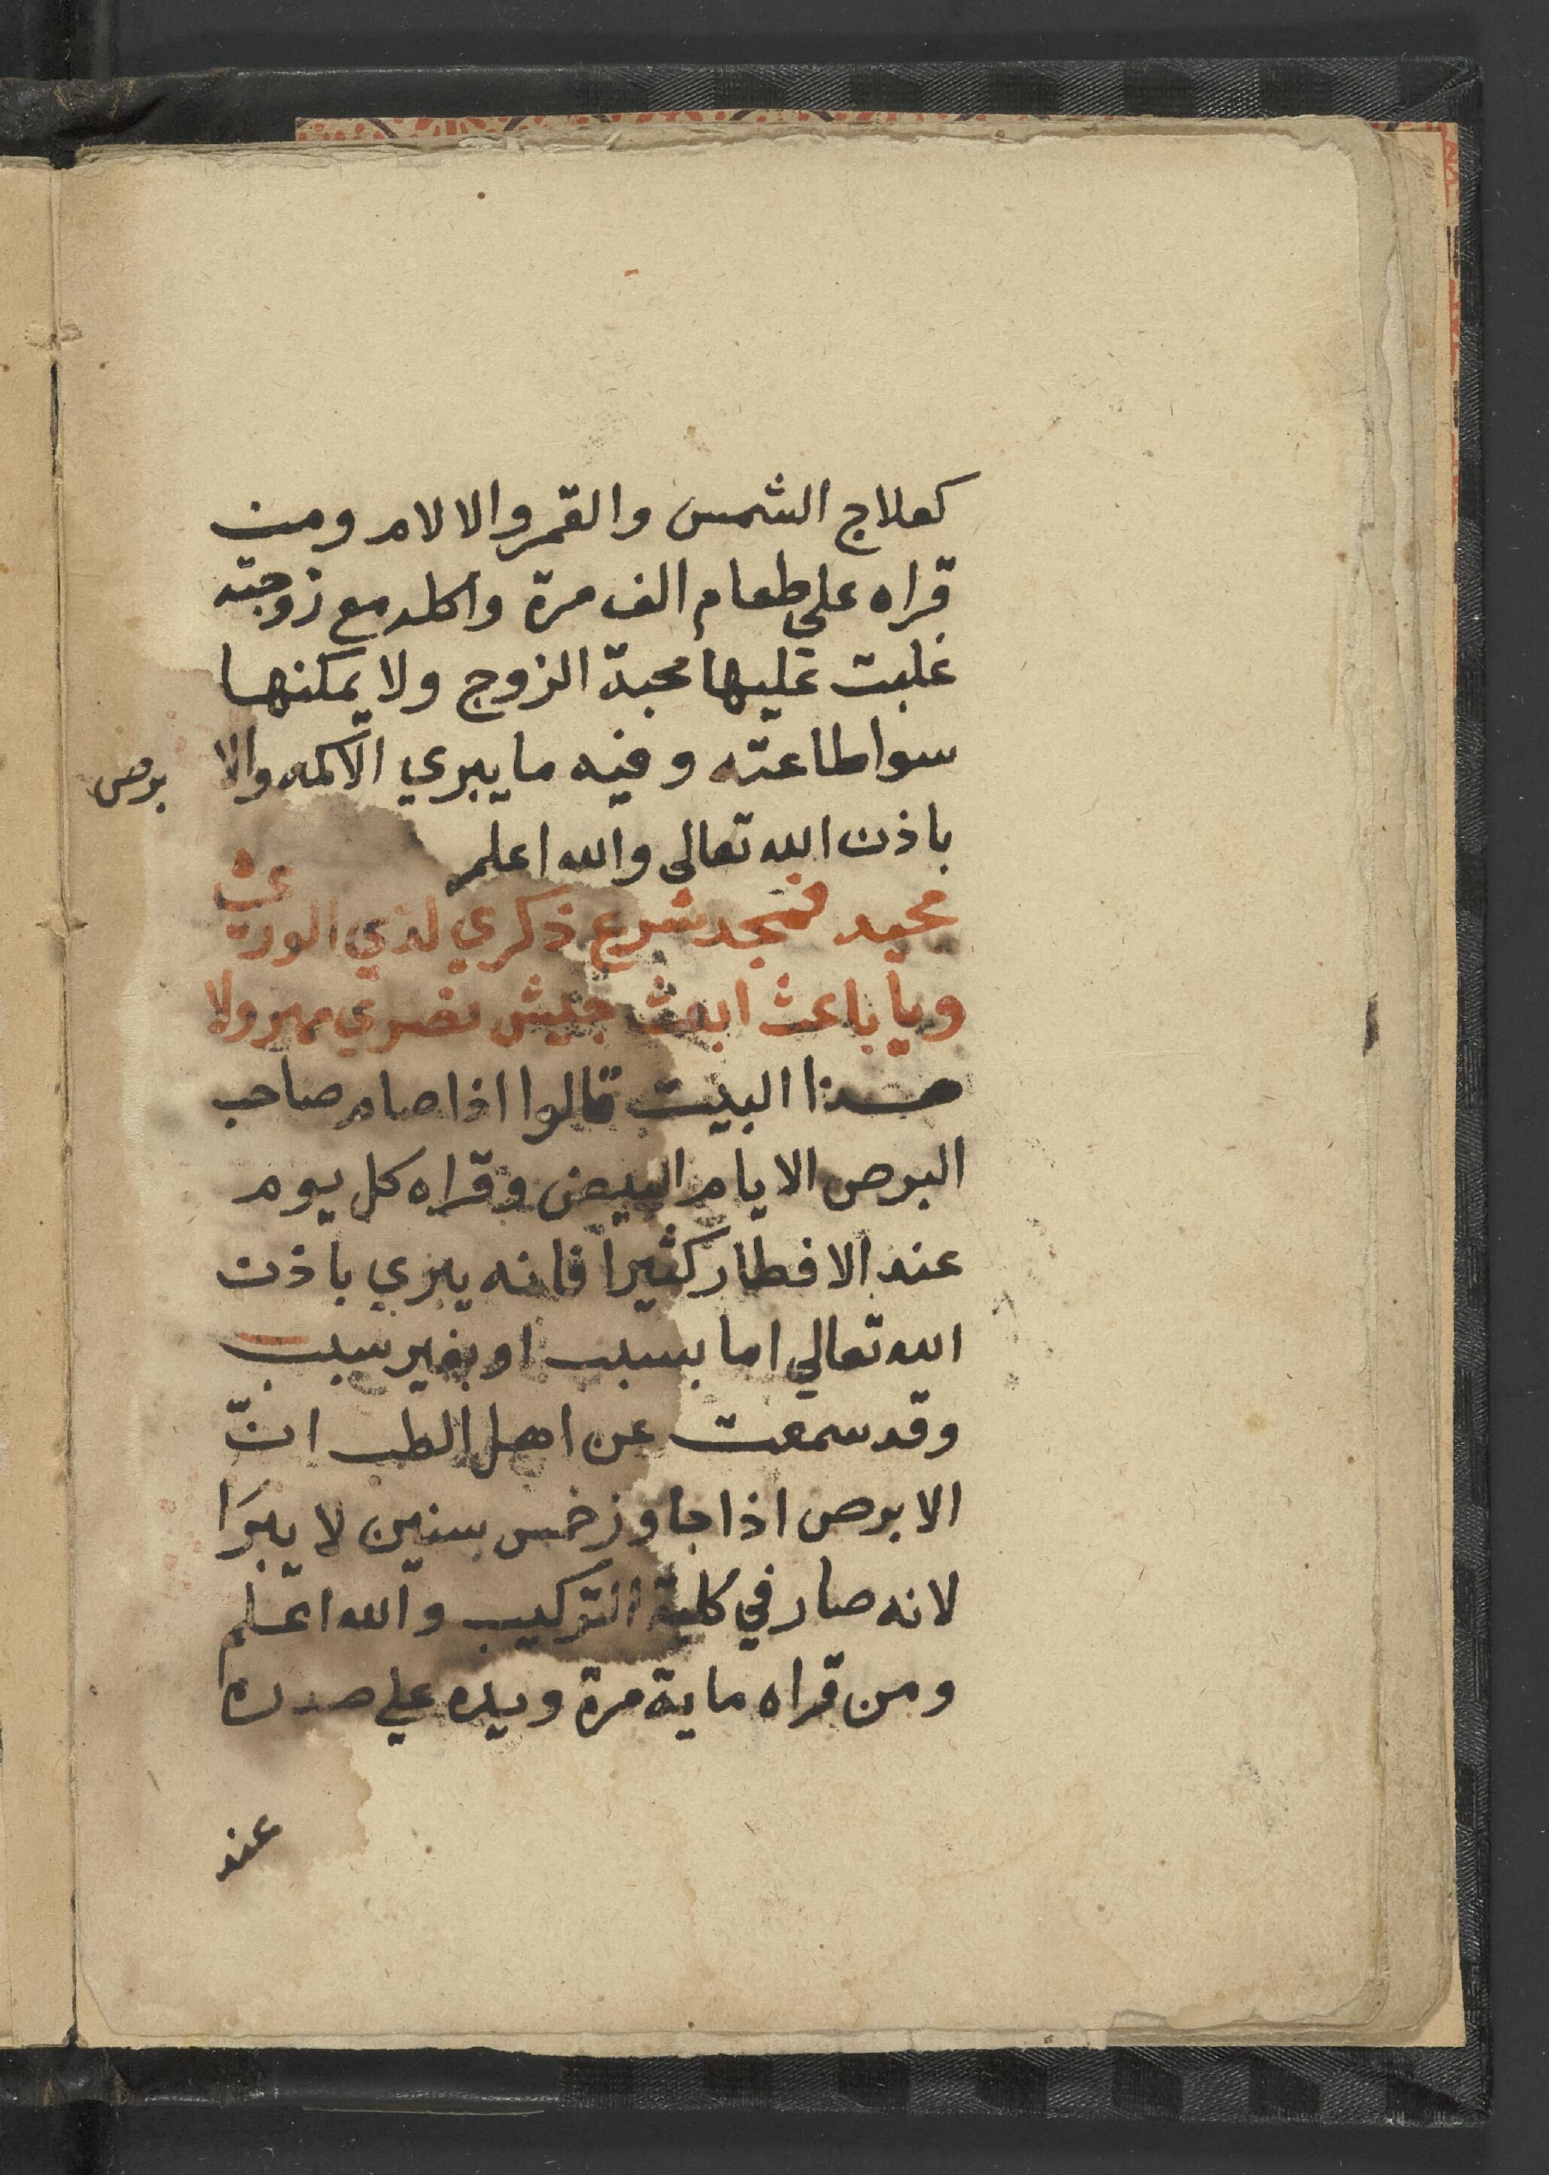 كعلاج الشمس والقمر والالام ومن
قراه علي طعام الف مرة واكله مع زوجته
غلبت عليها محبة الزوج ولا يمكنها
سوا طاعته وفيه ما يبري الاكمه والا برص
باذن الله تعالى والله اعلم
مجيد فمجد شرع ذكري لذي الورى
ويا باعث ابعث جيش نصري مهرولا
هذا البيت قالوا اذا صام صاحب
البرص الايام البيض وقراه كل يوم
عند الافطار كثيرا فانه يبري باذن
الله تعالي اما بسبب او بغير سبب
وقد سمعت عن اهل الطب انّ
الابرص اذا جاوز خمس سنين لا يبرَا
لانه صار في كلية التركيب والله اعلم
ومن قراه ماية مرة ويده علي صدره
عند